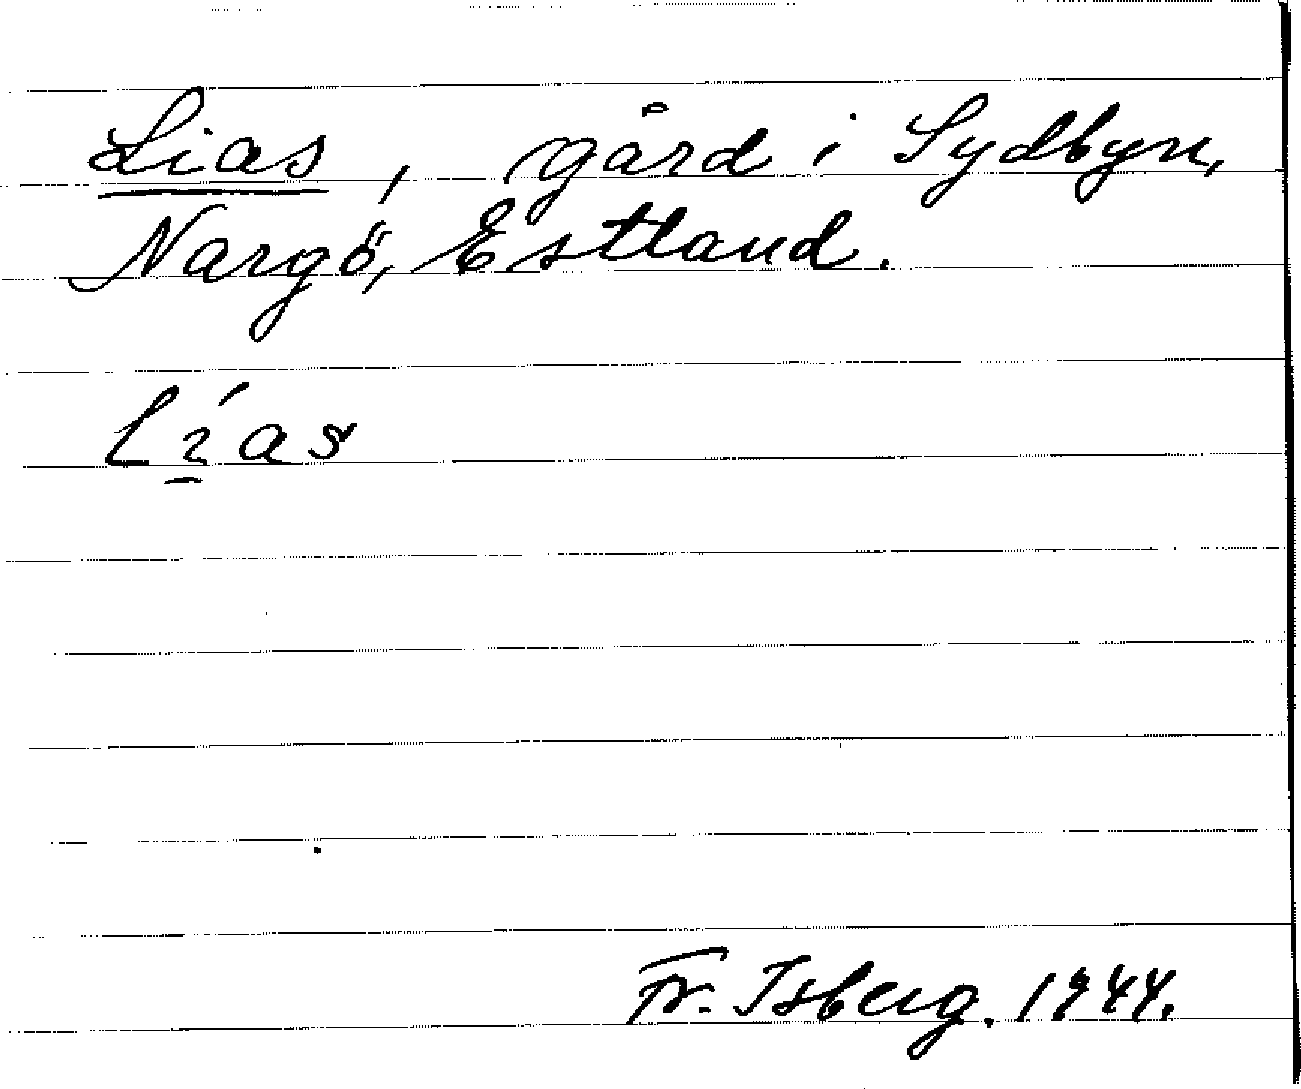 Lias, gård i Sydbyn,
Nargö, Estland.
Lías
Fr. Isberg. 1944.